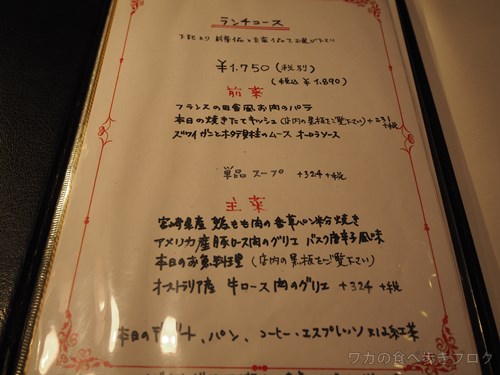 ランチコース
下記より 前菜1品と主菜1品でお選び下さい
¥1,750(税別)
(税込 ¥1,890)
前菜
フランスの田舎風お肉のパテ
本日の焼きたてキッシュ(店内の黒板をご覧下さい)+231+税
ズワイガニとホタテ貝柱のムース オーロラソース
単品スープ +324+税
主菜
宮崎県産 鶏もも肉の香草パン粉焼き
アメリカ産豚ロース肉のグリエ バスク唐辛子風味
本日のお魚料理(店内の黒板をご覧下さい)
オーストラリア産 牛ロース肉のグリエ +324+税
本日のデザート、パン、コーヒー・エスプレッソ又は紅茶
ワカの食べ歩きブログ